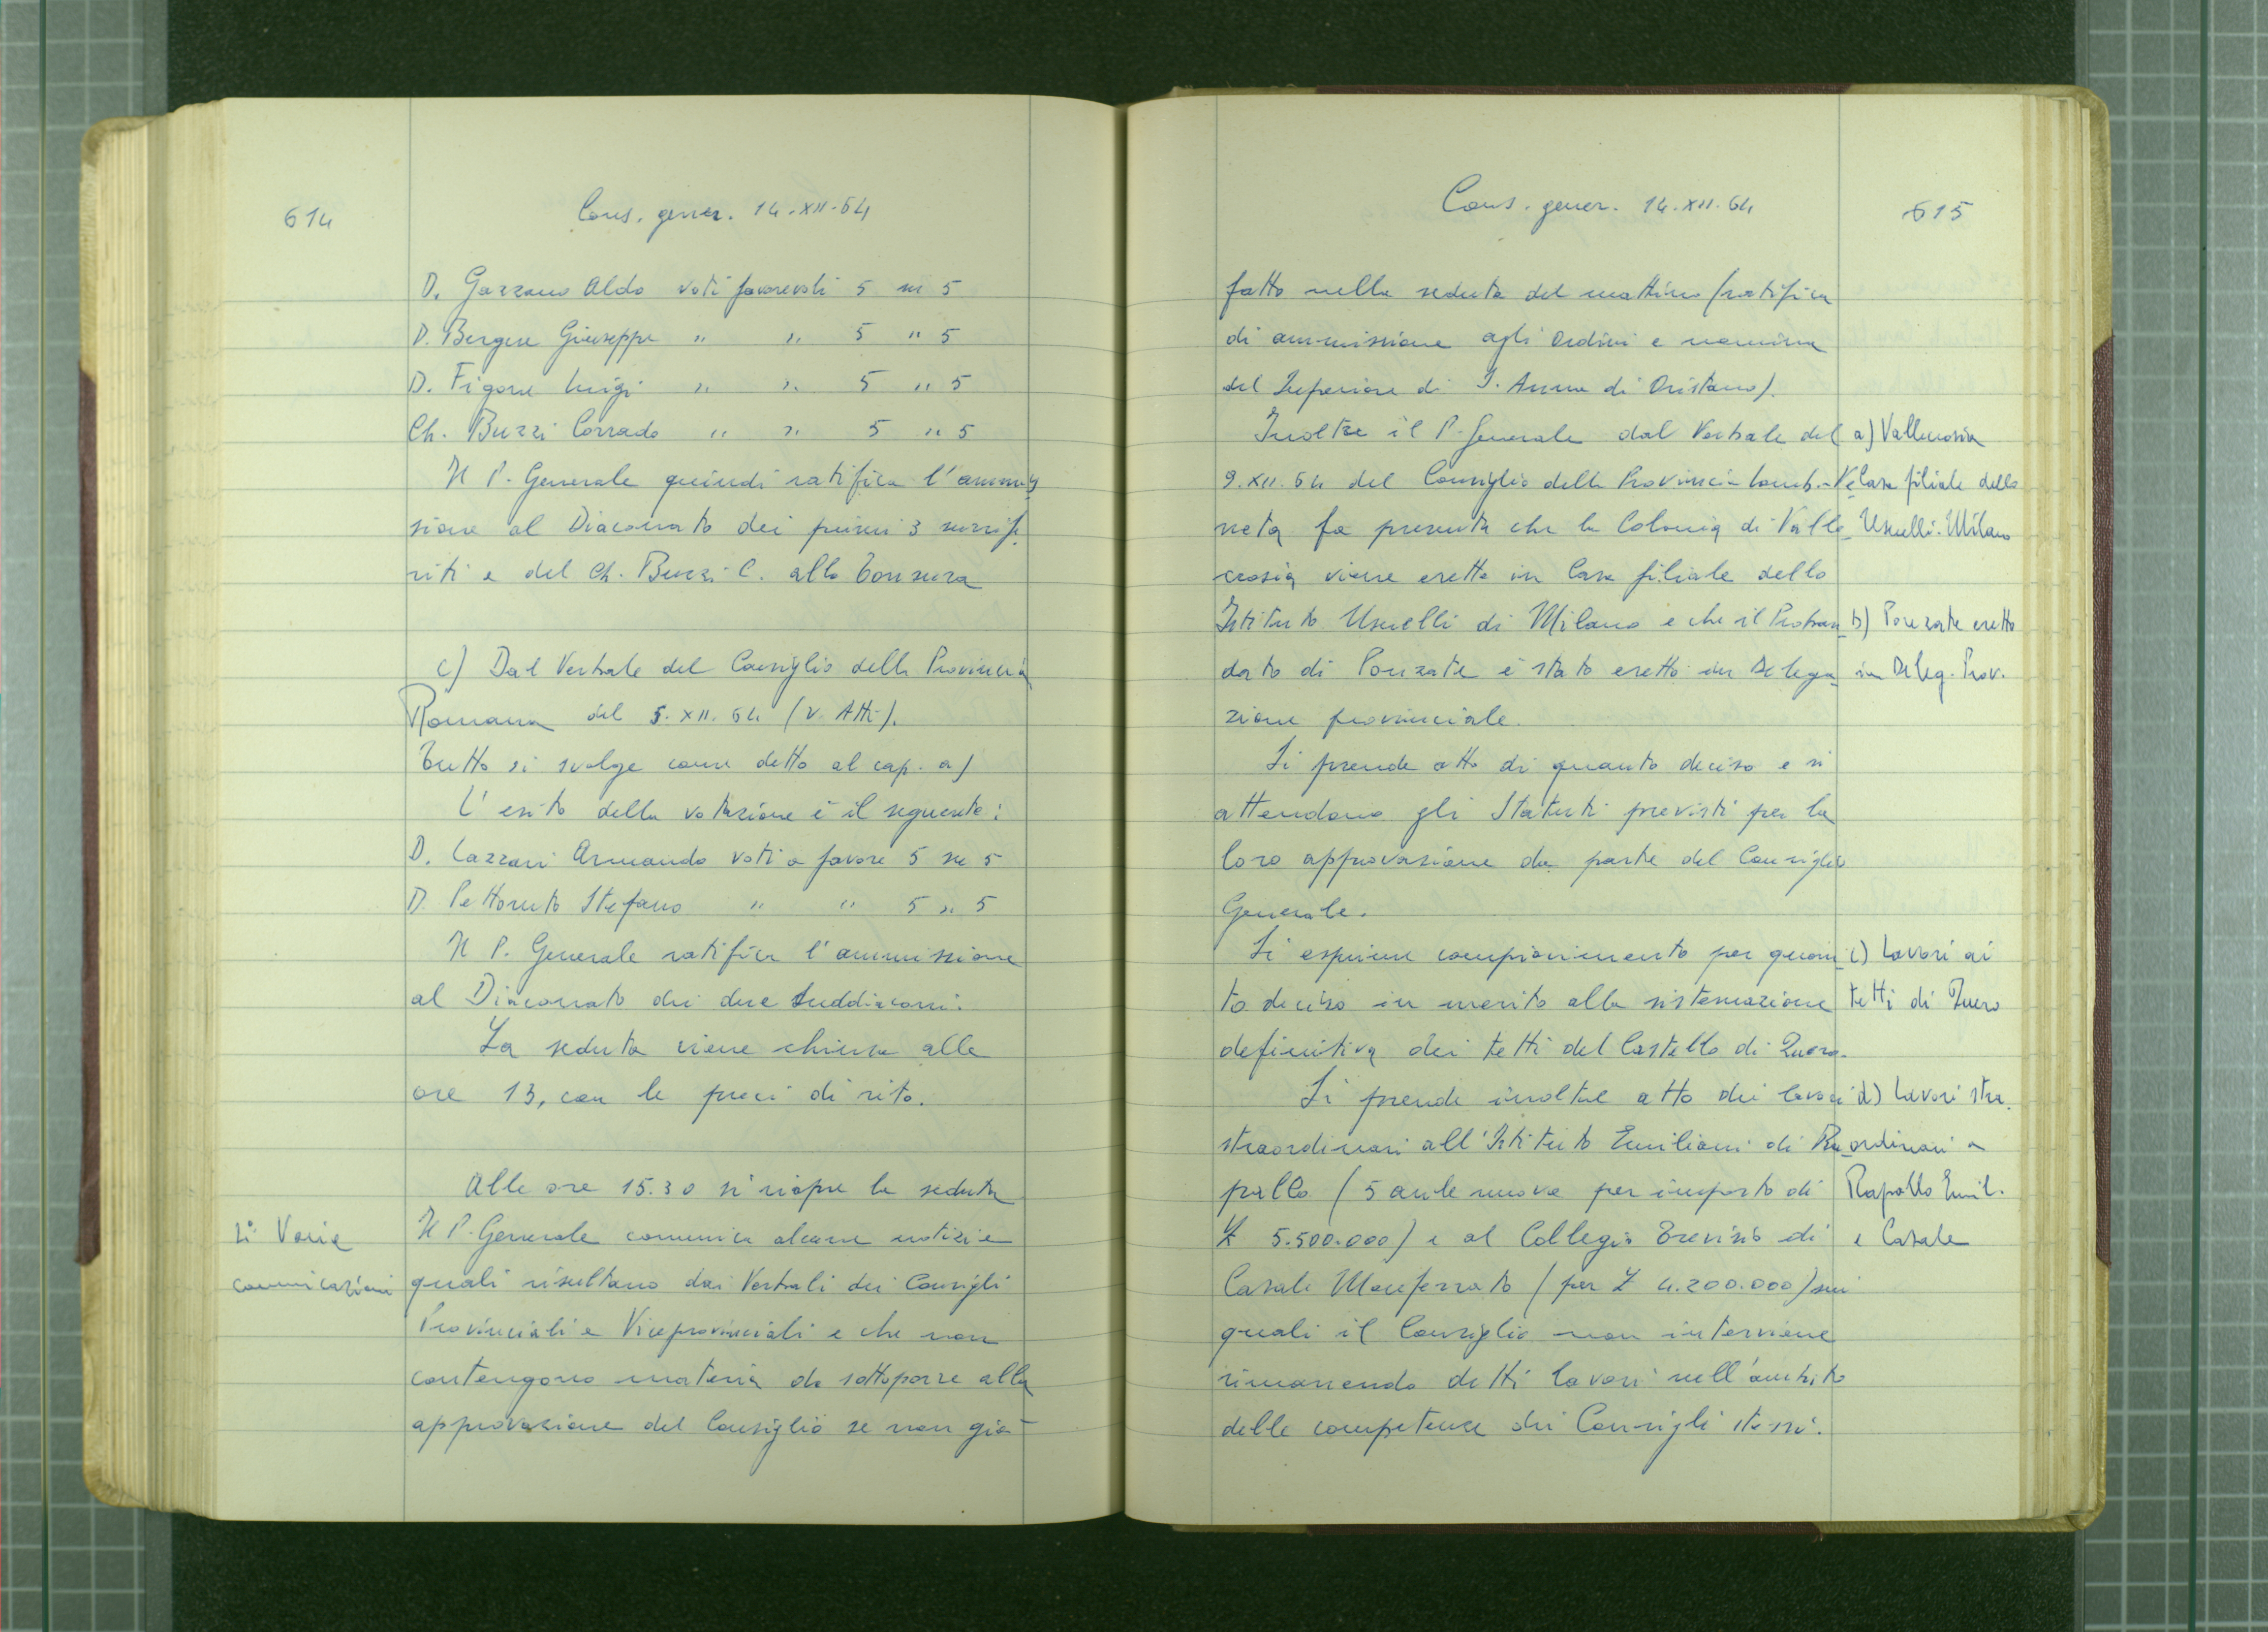 614
Cons. gener. 14.XII.64
D. Gazzano Aldo voti favorevoli 5 su 5
D. Bergese Giuseppe " " 5 " 5
D. Figone Luigi " " 5 " 5
Ch. Buzzi Corrado " " 5 " 5
Il P. Generale quindi ratifica l'ammis
sione al Diaconato dei primi 3 surrife
riti e del Ch. Buzzi C. alla Tonsura
c) Dal Verbale del Consiglio della Provincia
Romana del 5.XII.64 (v. Atti).
Tutto si svolge come detto al cap. a)
L'esito della votazione è il seguente:
D. Lazzari Armando voti a favore 5 su 5
D. Pettoruto Stefano " " 5 " 5
Il P. Generale ratifica l'ammissione
al Diaconato dei due Suddiaconi.
La seduta viene chiusa alle
ore 13, con le preci di rito.
Alle ore 15.30 si riapre la seduta
Varie
comunicazioni
Il P. Generale comunica alcune notizie
quali risultano dai Verbali dei Consigli
Provinciali e Viceprovinciali e che non
contengono materia da sottoporre alla
approvazione del Consiglio se non già
Cons. gener. 14.XII.64
615
fatto nella seduta del mattino (ratifica
di ammissione agli Ordini e nomina
del Superiore di S. Anna di Oristano).
Inoltre il P. Generale dal Verbale del
9.XII.64 del Consiglio della Provincia Lomb.-Ve
neta fa presente che la Colonia di Valle
crosia viene eretta in Casa filiale dello
Istituto Usuelli di Milano e che il Proban
dato di Ponzate è stato eretto in Delega
zione provinciale.
Si prende atto di quanto deciso e si
attendono gli Statuti previsti per la
loro approvazione da parte del Consiglio
Generale.
Si esprime compiacimento per quan
to deciso in merito alla sistemazione
definitiva dei tetti del Castello di Quero.
Si prende inoltre atto dei lavori
straordinari all'Istituto Emiliani di Ra
pallo (5 aule nuove per importo di
£ 5.500.000) e al Collegio Trevisio di
Casale Monferrato (per £ 4.200.000) sui
quali il Consiglio non interviene
rimanendo detti lavori nell'ambito
delle competenze dei Consigli stessi.
a) Vallecrosia
Casa filiale dello
Usuelli-Milano
b) Ponzate eretto
in Deleg. Prov.
c) Lavori ai
tetti di Quero
d) Lavori stra
ordinari a
Rapallo Emil.
e Casale